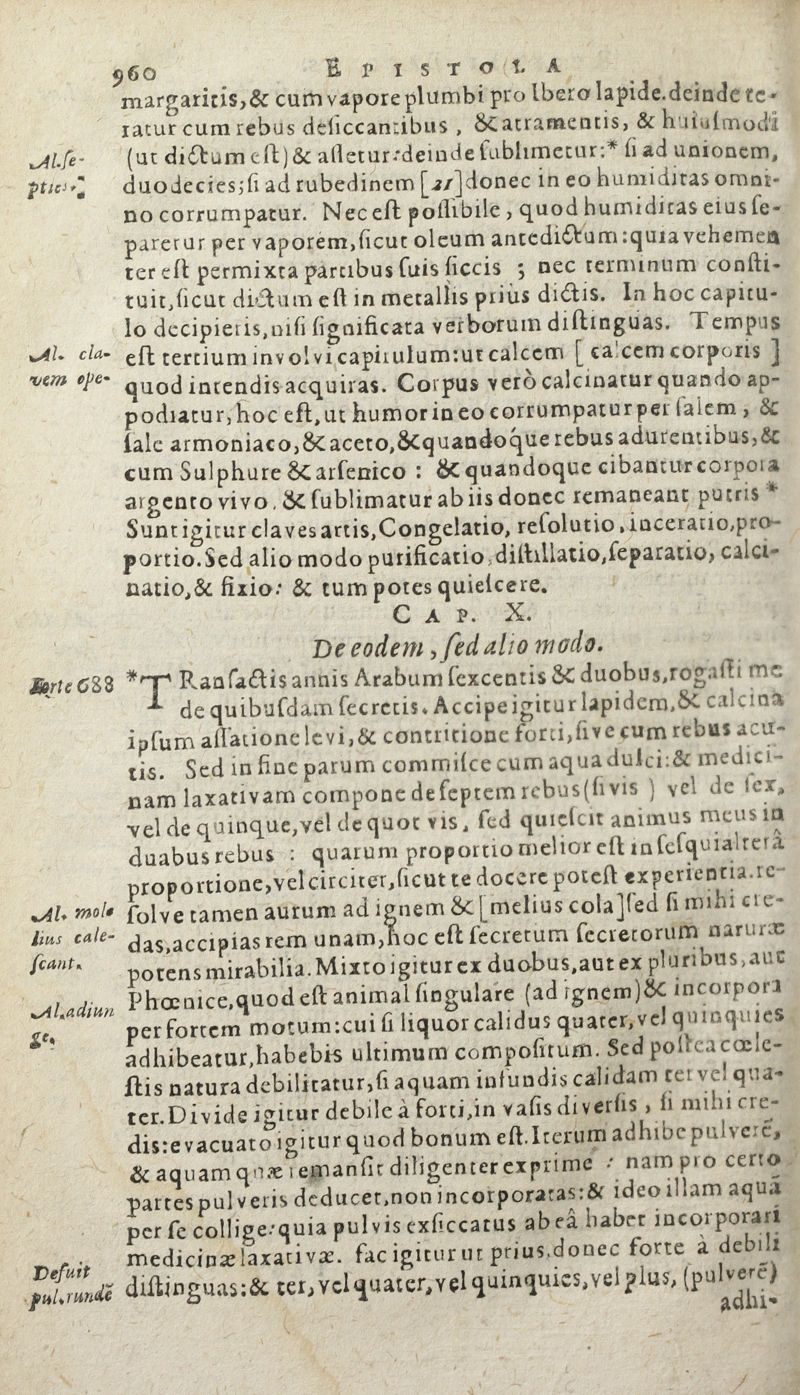 960 EPISTOLA
margaritis,& cum vapore plumbi pro Ibero lapide.deinde te-
ratur cum rebus desiccantibus , & atramentis, & huiusmodi
Al.se-
(ut dictum est)& assetur:deinde sublimetur:* si ad unionem,
pties
duodecies;si ad rubedinem [21]donec in eo humiditas omni-
no corrumpatur. Nec est possibile , quod humiditas eius se-
paretur per vaporem,sicut oleum antedictum:quia vehemen
ter est permixta partibus suis siccis ; nec terminum consti-
tuit,sicut dictum est in metallis priùs dictis. In hoc capitu-
lo decipieris,nisi significata verborum distinguas. Tempus
Al. cla-
est tertium involvi capitulum:ut calcem [ calcem corporis ]
vem ope-
quod intendis acquiras. Corpus verò calcinatur quando ap-
podiatur,hoc est,ut humor in eo corrumpatur per salem , &
sale armoniaco,& aceto,& quandoque rebus adurentibus,&
cum Sulphure & arsenico : & quandoque cibantur corpora
argento vivo, & sublimatur ab iis donec remaneant putris *
Sunt igitur claves artis,Congelatio, resolutio,inceratio,pro-
portio.Sed alio modo purificatio,distillatio,separatio, calci-
natio,& fixio: & tum potes quiescere.
CAP. X.
De eodem , sed alio modo.
Forte 688
*TRansactis annis Arabum sexcentis & duobus,rogasti me
de quibusdam secretis. Accipe igitur lapidem,& calcina
ipsum assatione levi,& contritione forti,sive cum rebus acu-
tis. Sed in fine parum commisce cum aqua dulci:& medici-
nam laxativam compone de septem rebus(si vis ) vel de sex,
vel de quinque,vel de quot vis, sed quiescit animus meus in
duabus rebus : quarum proportio melior est in sesquialtera
proportione,vel circiter,sicut te docere potest experientia.re-
Al. mol-
solve tamen aurum ad ignem & [melius cola]sed si mihi cre-
lius cale-
das,accipias rem unam,hoc est secretum secretorum naturæ
scant.
potens mirabilia.Mixto igitur ex duobus,aut ex pluribus,aut
Al.adiun
Phœnice,quod est animal singulare (ad ignem)& incorpora
ge.
per fortem motum:cui si liquor calidus quater,vel quinquies
adhibeatur,habebis ultimum compositum. Sed postea cœle-
stis natura debilitatur,si aquam infundis calidam ter vel qua-
ter.Divide igitur debile à forti,in vasis diversis , si mihi cre-
dis:evacuato igitur quod bonum est.Iterum adhibe pulvere,
& aquam quæ remansit diligenter exprime : nam pro certo
partes pulveris deducet,non incorporatas:& ideo illam aquā
per se collige:quia pulvis exsiccatus ab eâ habet incorporari
medicinæ laxativæ. fac igitur ut prius,donec forte à debili
Defuit
distinguas:& ter,vel quater,vel quinquies,vel plus, (pulvere)
pul.rundē
adhi-